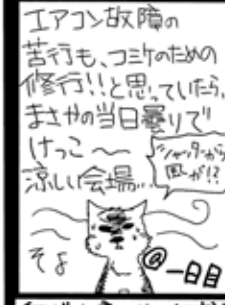 エアコン故障の
苦行も、コミケのための
修行!!と思っていたら、
まさかの当日曇りで
けっこ〜
涼しい会場…
シャッターから
風が!?
そよ
@一日目